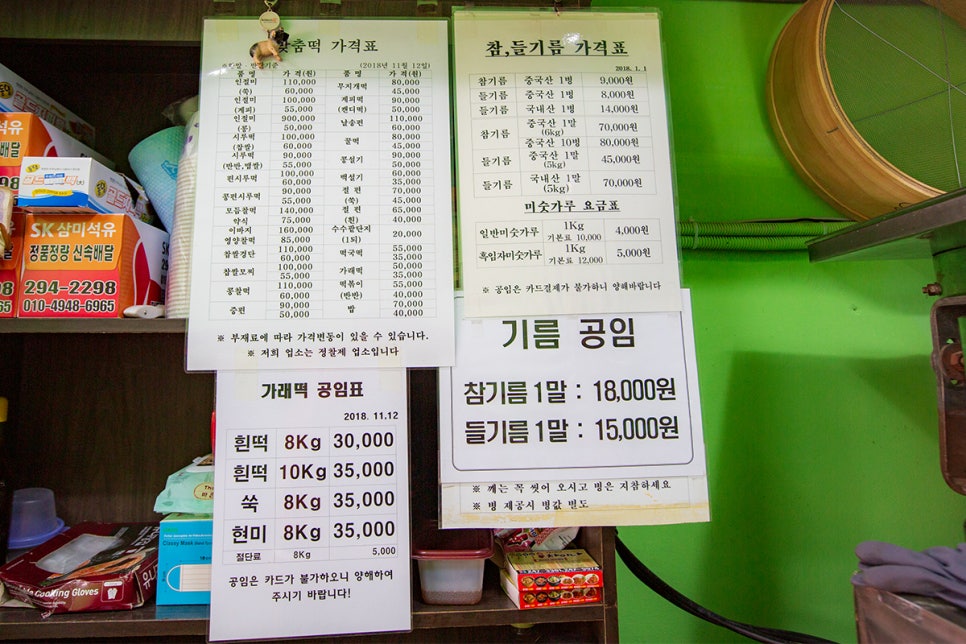 맞춤떡 가격표
(2018년 11월 12일)
품 명 가 격(원) 품 명 가 격(원)
인절미 110,000 무지개떡 80,000
(쑥) 60,000 45,000
인절미 100,000 제피떡 90,000
(계피) 55,000 (랜디떡) 50,000
인절미 900,000 날송편 110,000
(콩) 50,000 60,000
시루떡 100,000 꿀떡 80,000
(찹쌀) 60,000 45,000
시루떡 90,000 콩설기 90,000
(반반,멥쌀) 55,000 50,000
편시루떡 100,000 백설기 60,000
60,000 35,000
콩편시루떡 90,000 절 편 70,000
55,000 (쑥) 45,000
모듬찰떡 140,000 절 편 65,000
약식 75,000 (흰) 40,000
이바지 160,000 수수팥단지 20,000
영양찰떡 85,000 (1되)
찹쌀경단 110,000 떡국떡 55,000
60,000 35,000
찹쌀모찌 100,000 가래떡 50,000
55,000 35,000
콩찰떡 110,000 떡볶이 55,000
60,000 (반반) 40,000
증편 90,000 밥 70,000
50,000 40,000
※ 부재료에 따라 가격변동이 있을 수 있습니다.
※ 저희 업소는 정찰제 업소입니다
참,들기름 가격표
2018. 1. 1
참기름 중국산 1병 9,000원
들기름 중국산 1병 8,000원
들기름 국내산 1병 14,000원
참기름 중국산 1말 (6kg) 70,000원
중국산 10병 80,000원
들기름 중국산 1말 (5kg) 45,000원
들기름 국내산 1말 (5kg) 70,000원
미숫가루 요금표
일반미숫가루 1Kg 기본료 10,000 4,000원
흑임자미숫가루 1Kg 기본료 12,000 5,000원
※ 공임은 카드결제가 불가하니 양해바랍니다
기름 공임
참기름 1말 : 18,000원
들기름 1말 : 15,000원
※ 깨는 꼭 씻어 오시고 병은 지참하세요
※ 병 제공시 병값 별도
가래떡 공임표
2018. 11.12
흰떡 8Kg 30,000
흰떡 10Kg 35,000
쑥 8Kg 35,000
현미 8Kg 35,000
절단료 8Kg 5,000
공임은 카드가 불가하오니 양해하여
주시기 바랍니다!
SK 삼미석유
정품정량 신속배달
294-2298
010-4948-6965
Cooking Gloves